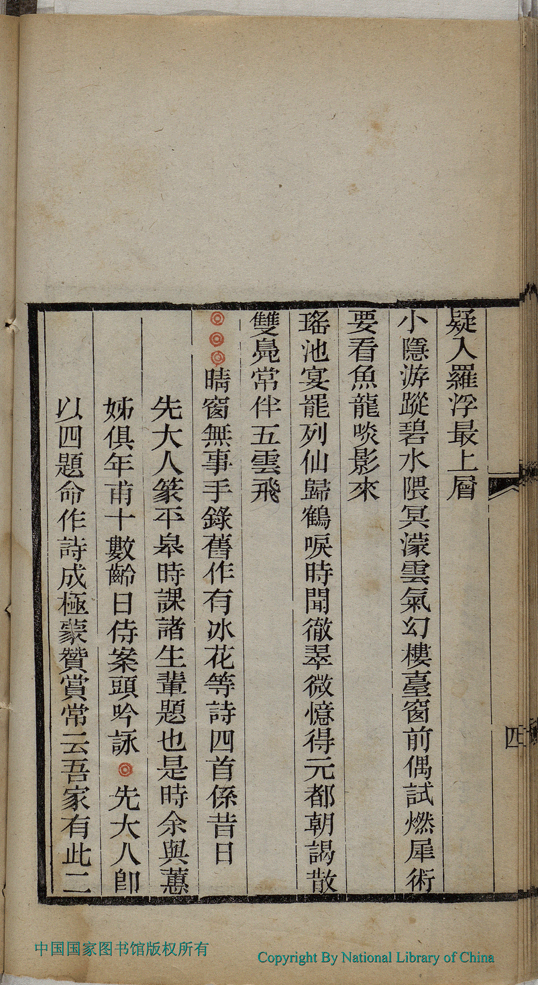 疑入羅浮最上層
小隱游蹤碧水隈冥濛雲氣幻樓臺窗前偶試燃犀術
要看魚龍啖影來
瑤池宴罷列仙歸鶴唳時聞徹翠微憶得元都朝謁散
雙鳧常伴五雲飛
晴窗無事手錄舊作有冰花等詩四首係昔日
先大人篆平皋時課諸生輩題也是時余與蕙
姊俱年甫十數齡日侍案頭吟詠 先大人卽
以四題命作詩成極蒙贊賞常云吾家有此二
四
中国国家图书馆版权所有
Copyright By National Library of China